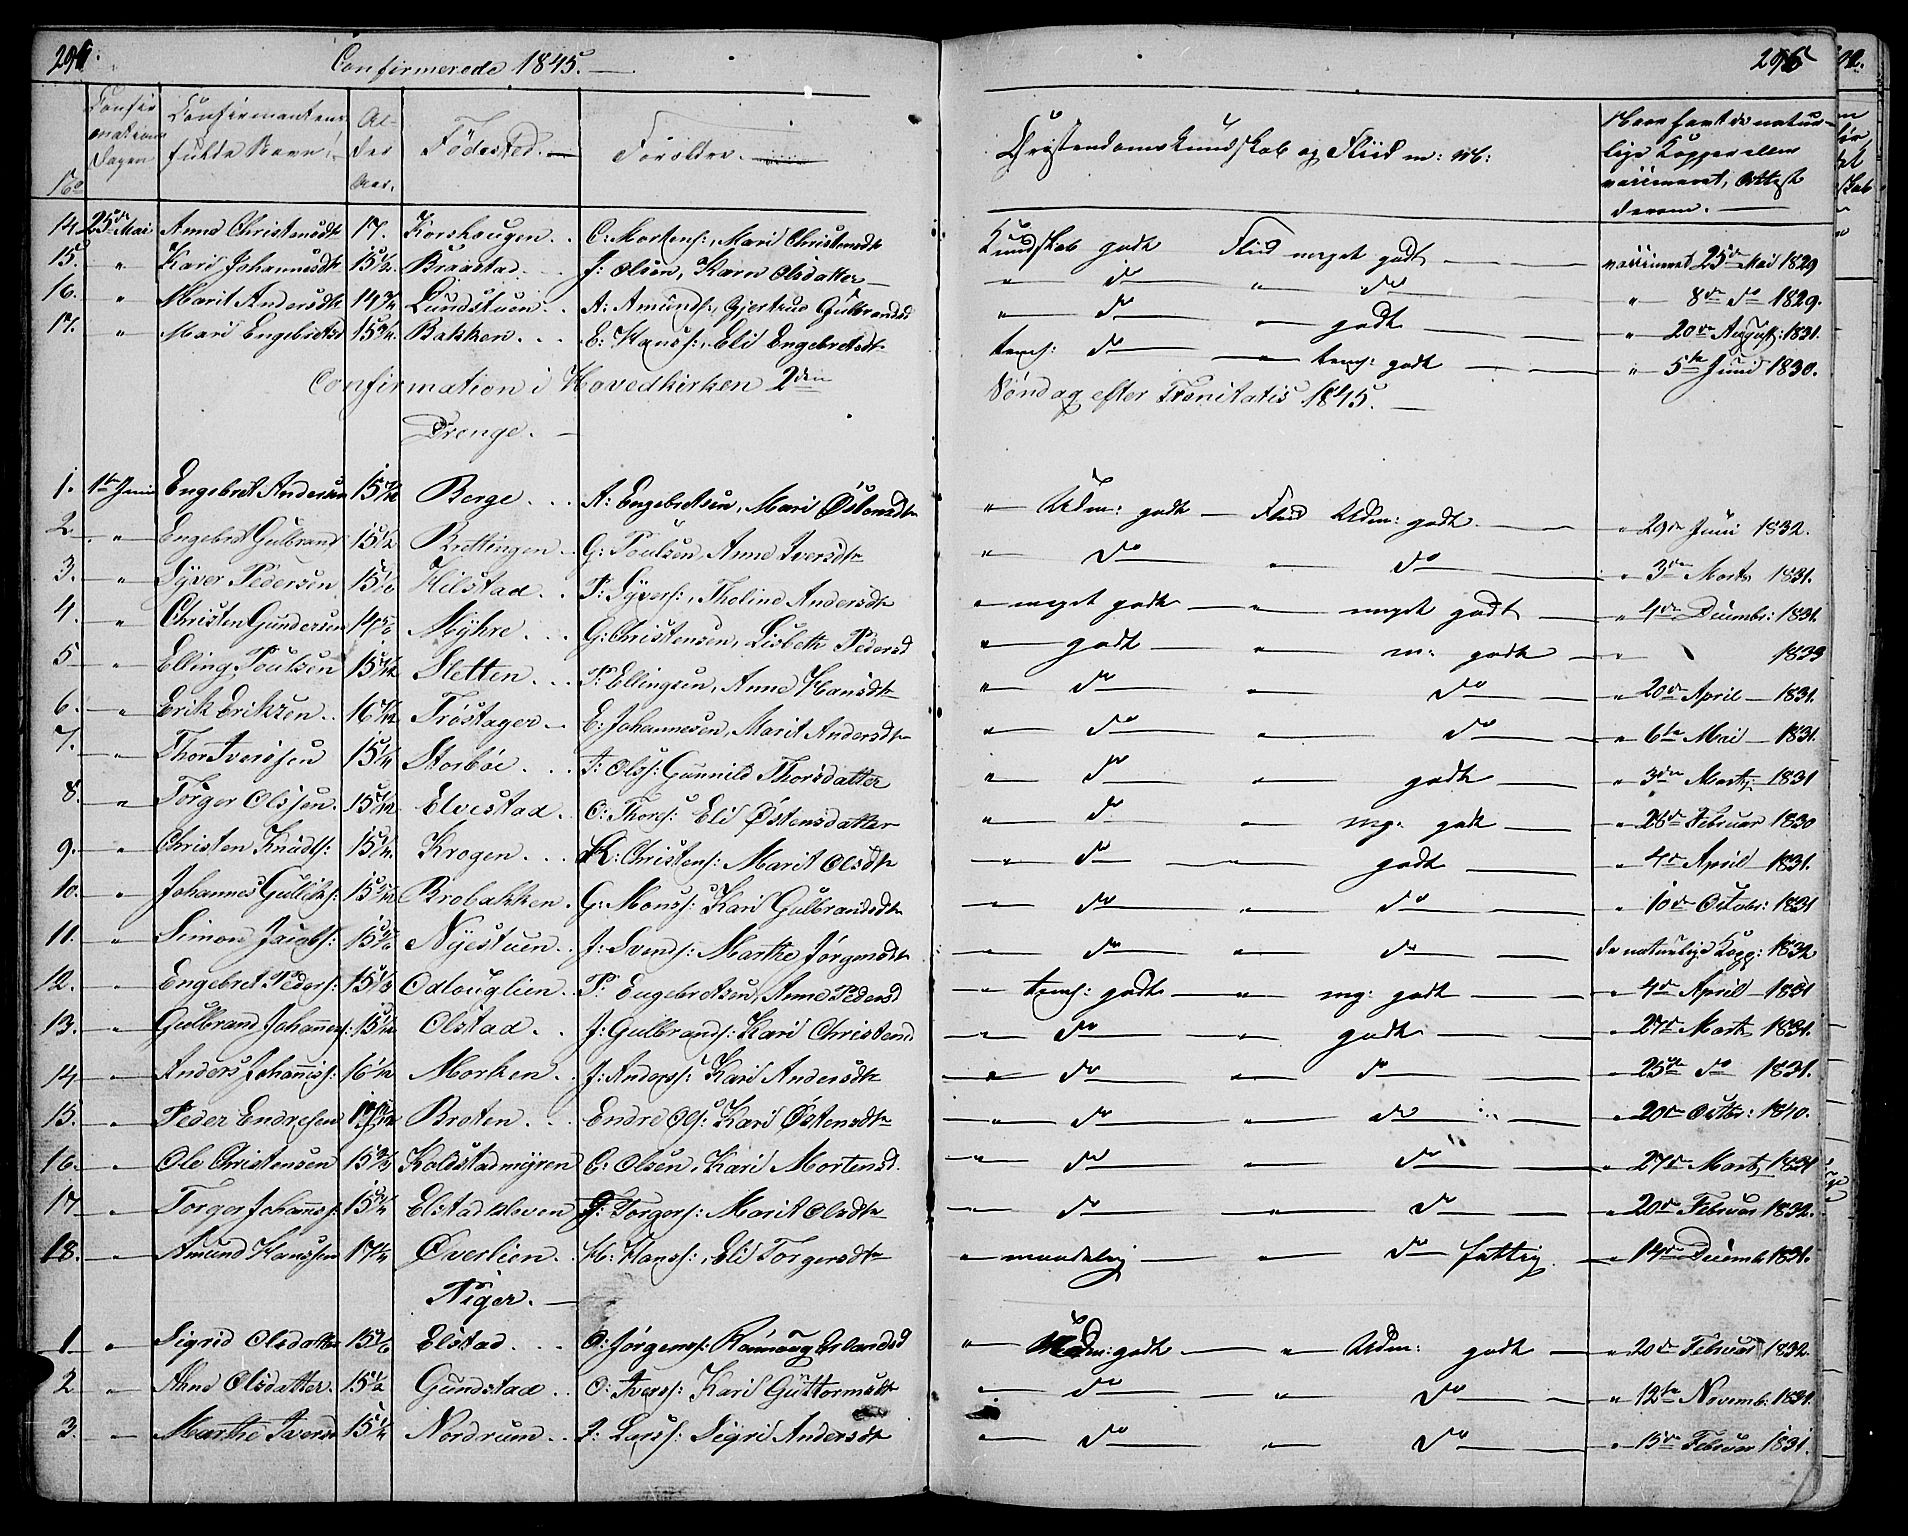 Confirmerede 1845.
295
Confirmations Dagen
Confirmantens fulde Navn.
Alder Aar.
Fødested.
Forældre.
Christendomskundskab og Fliid m: m:
Naar havt de naturlige Kopper eller vaccineret, Attest derom.
No
14. 25de Mai Anne Christensdtr 17. Korshougen. C. Mortens:, Mari Christensdtr Kundskab godt Fliid meget godt vaccineret 25de Mai 1829
15. " Kari Johannesdtr 15 1/2 Braastad. J: Olsen, Karen Olsdatter do " do " 8de do 1829.
16. " Marit Andersdtr 14 3/4 Lundstuen. A: Amunds:, Gjertrud Gulbrandsd do " godt " 20de August: 1831.
17. " Mari Engebretsd 15 Bakken. E: Hanss:, Eli Engebretsdtr temf: do " temf: godt " 5te Juni 1830.
Confirmation i Hovedkirken 2den Søndag efter Trinitatis 1845.
Drenge.
1. 1te Juni Engebret Andersen 15 Berge. A: Engebretsen, Mari Østensdtr " Udm: godt Fliid Udm: godt " 29de Juni 1832.
2. " Engebret Gulbrand 15 1/2 Brettingen. G: Poulsen, Anne Iversdtr " do " do " 3die Marts 1831.
3. " Syver Pedersen 15 1/6 Hilstad. P: Syvers:, Tholine Andersdtr " meget godt " meget godt " 4de Decembr: 1831.
4. " Christen Gundersen 14 Myhre. G: Christensen, Lisbeth Pedersd " godt " m: godt " 1833
5. " Elling Poulsen 15 Sletten. P. Ellingsen, Anne Hansdtr " do " do " 20de April 1831.
6. " Erik Eriksen. 16 Trøstager. E: Johannesen, Marit Andersdtr " do " do " 6te Mai 1831.
7. " Thor Iverssen 15 1/4 Storbøe. I: Olss: Gunnild Thorsdatter " do " godt " 3die Marts 1831
8. " Torger Olssen. 15 Elvestad. O: Thors: Eli Østensdatter " do " mg: godt " 26de Februar 1830
9. " Christen Knuds: 15 Krogen. K: Christens: Marit Olsdtr " do " godt " 4de April 1831.
10. " Johannes Gulliks: 15 Brobakken. G: Monss: Kari Gulbrandsdtr " do " do " 10de Octobr: 1831
11. " Simon Jacobs: 15 Nyestuen. J: Svends: Marthe Jørgensdtr " do " do de naturlige Kopp: 1832
12. " Engebret Peders: 15 1/3 Odlouglien. P: Engebretsen, Anne Pedersd " temf: godt " mg: godt " 4de April 1831
13. " Gulbrand Johannes: 15 Olstad. J: Gulbrands: Kari Christensd " do " godt " 27de Marts 1831.
14. " Anders Johannes: 16 Morken. J: Anderss: Kari Andersdtr " do " do " 25de do 1831.
15. " Peder Endresen Broten. Endre Ols: Kari Østensdtr " do " do " 20de Octbr: 1840.
16. " Ole Christensen 15 Koldstadmyren C: Olsen, Kari Mortensd. " do " do " 27de Marts 1831
17. " Torger Johannes: 15 Elstadkleven J: Torgers: Marit Olsdtr " do " do " 20de Februar 1832.
18. " Amund Hanssen 17 Øverlien. H: Hanss:, Eli Torgersdtr " maadelig " do fattig " 14de Decemb: 1831.
Piger.
1 " Sigrid Olsdatter 15 Elstad. O: Jørgenss: Rønnoug Erlandsd " Udm: godt " Udm: godt " 20de Februar 1832
2 " Anne Olsdatter. 15 1/2 Gundstad. O: Iverss: Kari Guttormsdtr " do " do " 12te Novemb: 1831.
3. Marthe Iversd 15 1/4 Nordrum. I: Larss: Sigri Andersdtr " do " do " 15de Februar 1831.